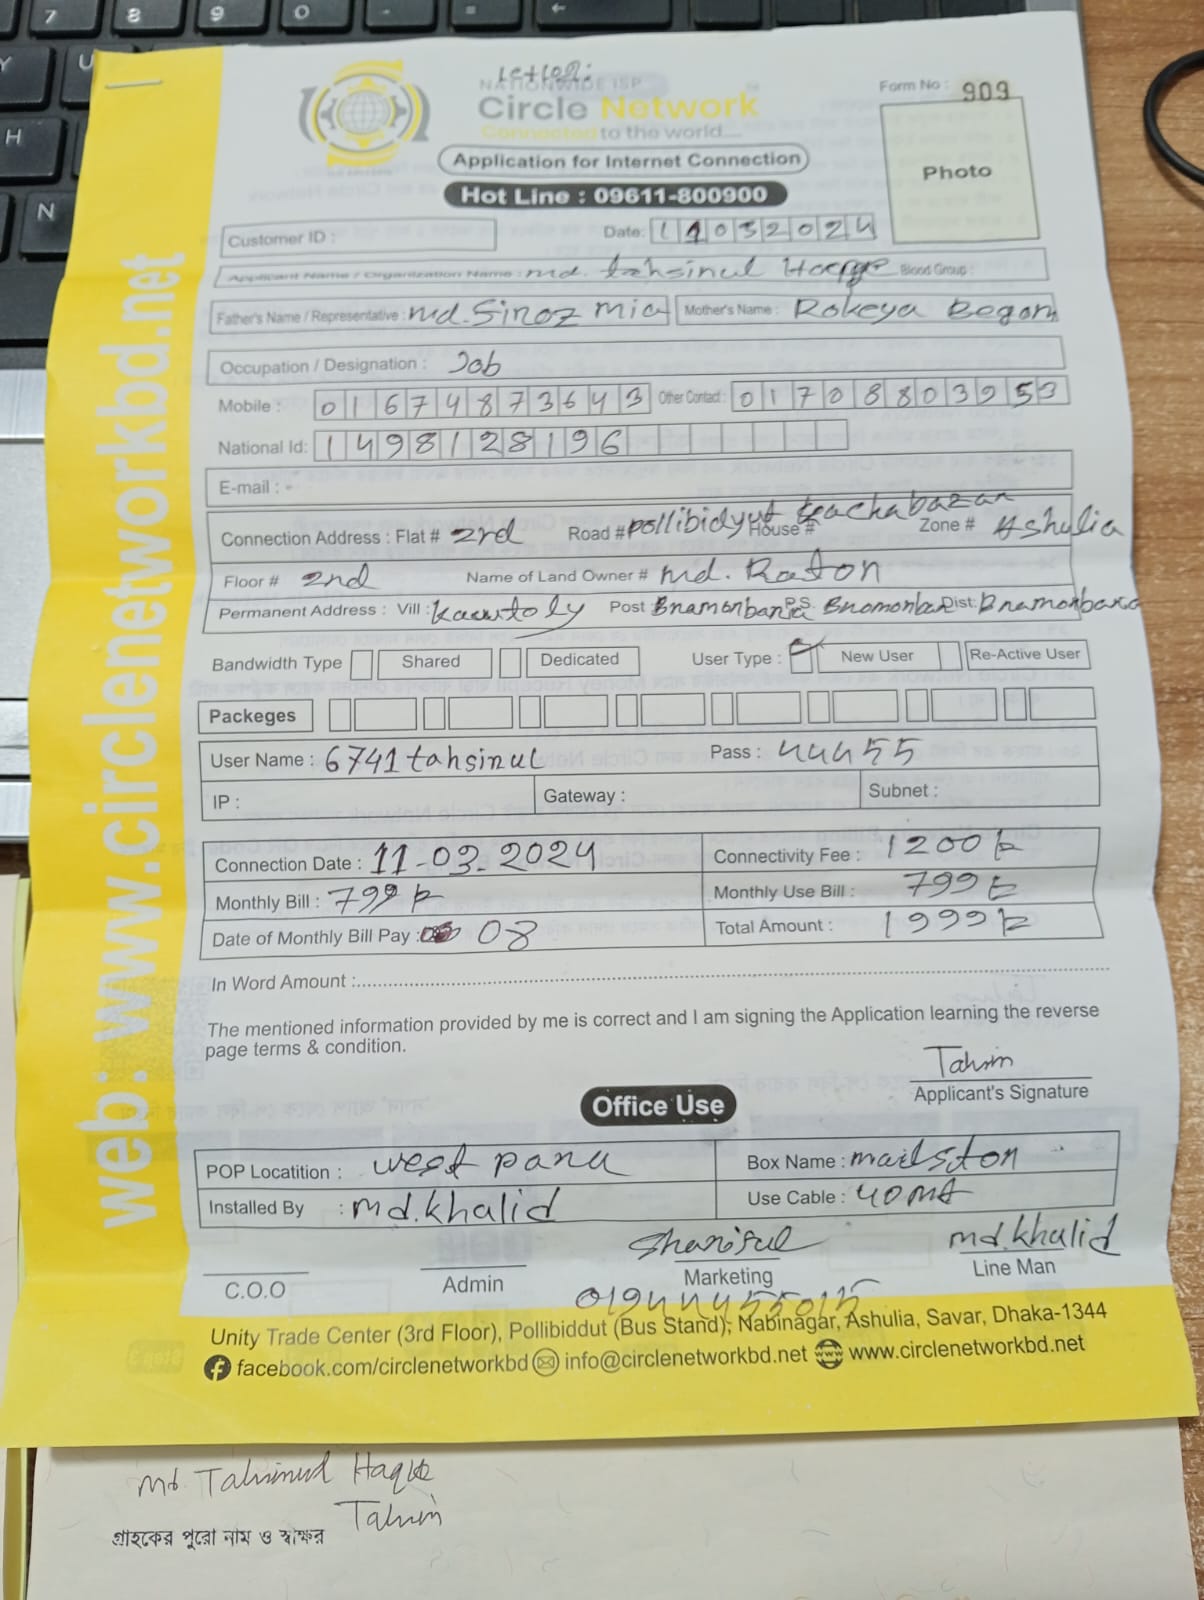 Letter:
NATIONWIDE ISP
Circle Network
Connected to the world....
Form No : 909
Photo
Application for Internet Connection
Hot Line : 09611-800900
Customer ID :
Date: 11032024
Applicant Name / Organization Name : md. tahsinul Blood Group :
Father's Name / Representative : md. Siroz mia Mother's Name : Rokeya Begom
Occupation / Designation : Job
Mobile : 01674873643 Other Contact : 01708803953
National Id: 1498128196
E-mail : -
Connection Address : Flat # 2rd Road # pollibidyut kachabazar House # Zone # Ashulia
Floor # 2nd Name of Land Owner # Md. Raton
Permanent Address : Vill : Kawtoly Post Bnamonbaria P.S. Dist:
Bandwidth Type Shared Dedicated User Type : New User Re-Active User
Packeges
User Name : 6741tahsinul Pass : 44455
IP : Gateway : Subnet :
Connection Date : 11-03-2024 Connectivity Fee : 1200
Monthly Bill : 799 Monthly Use Bill : 799
Date of Monthly Bill Pay : 08 Total Amount : 1999
In Word Amount :
The mentioned information provided by me is correct and I am signing the Application learning the reverse
page terms & condition.
Tahsin
Applicant's Signature
Office Use
POP Locatition : west para Box Name : mailston
Installed By : md.khalid Use Cable : 40
Shariful md.khalid
C.O.O Admin Marketing Line Man
Unity Trade Center (3rd Floor), Pollibiddut (Bus Stand), Nabinagar, Ashulia, Savar, Dhaka-1344
facebook.com/circlenetworkbd info@circlenetworkbd.net www.circlenetworkbd.net
web: www.circlenetworkbd.net
Md. Tahsinul Haque
Tahsin
গ্রাহকের পুরো নাম ও স্বাক্ষর